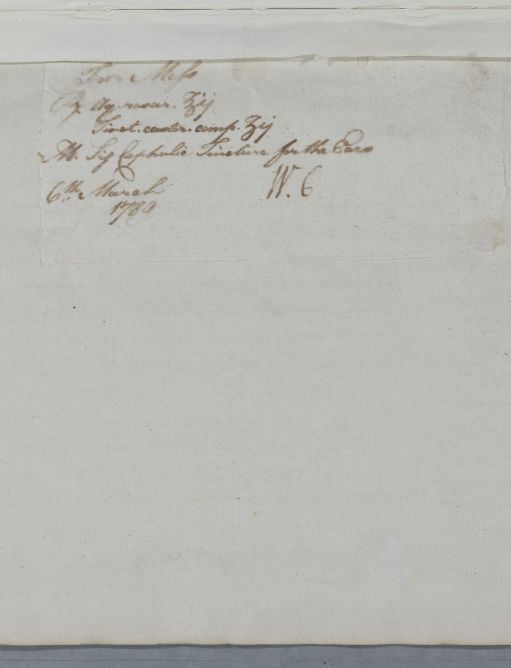 For Miss
Rx Aq. rosar. ʒij
Tinct. castor. comp. ʒij
M. Sig Cephalic Tincture for the Ears
6th March W. C
1789